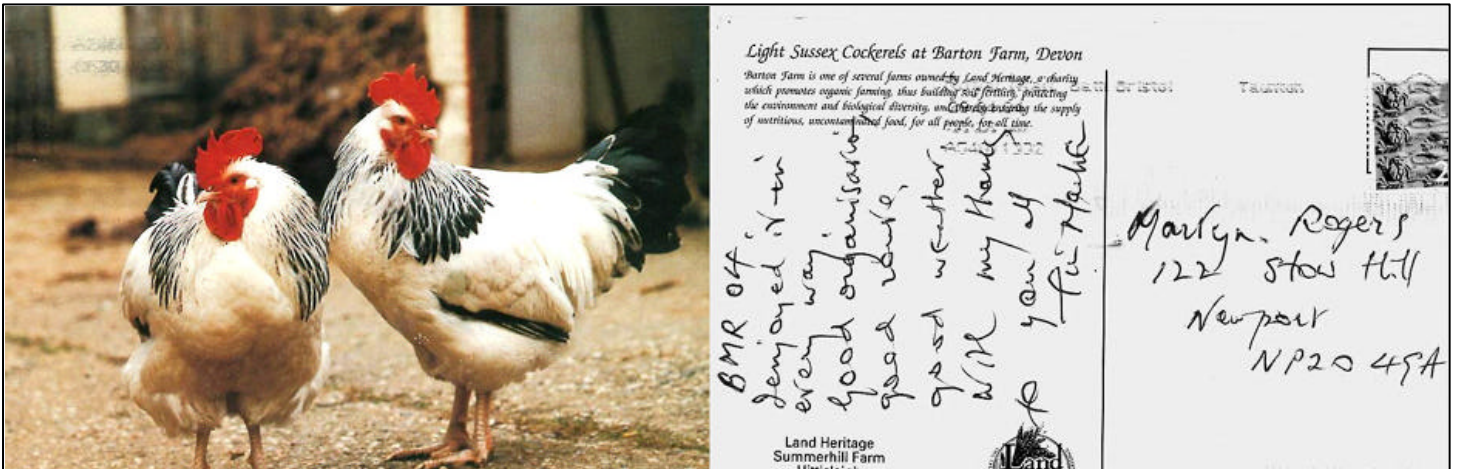 Light Sussex Cockerels at Barton Farm, Devon
Barton Farm is one of several farms owned by Land Heritage, a charity
which promotes organic farming, thus building soil fertility, protecting
the environment and biological diversity, and thereby ensuring the supply
of nutritious, uncontaminated food, for all people, for all time.
Bristol
Taunton
BMR 04
I enjoyed it in
every way
good organisation
good route,
good weather
with my thanks
to you all
Martyn Rogers
122 Stow Hill
Newport
Land Heritage
Summerhill Farm
Land